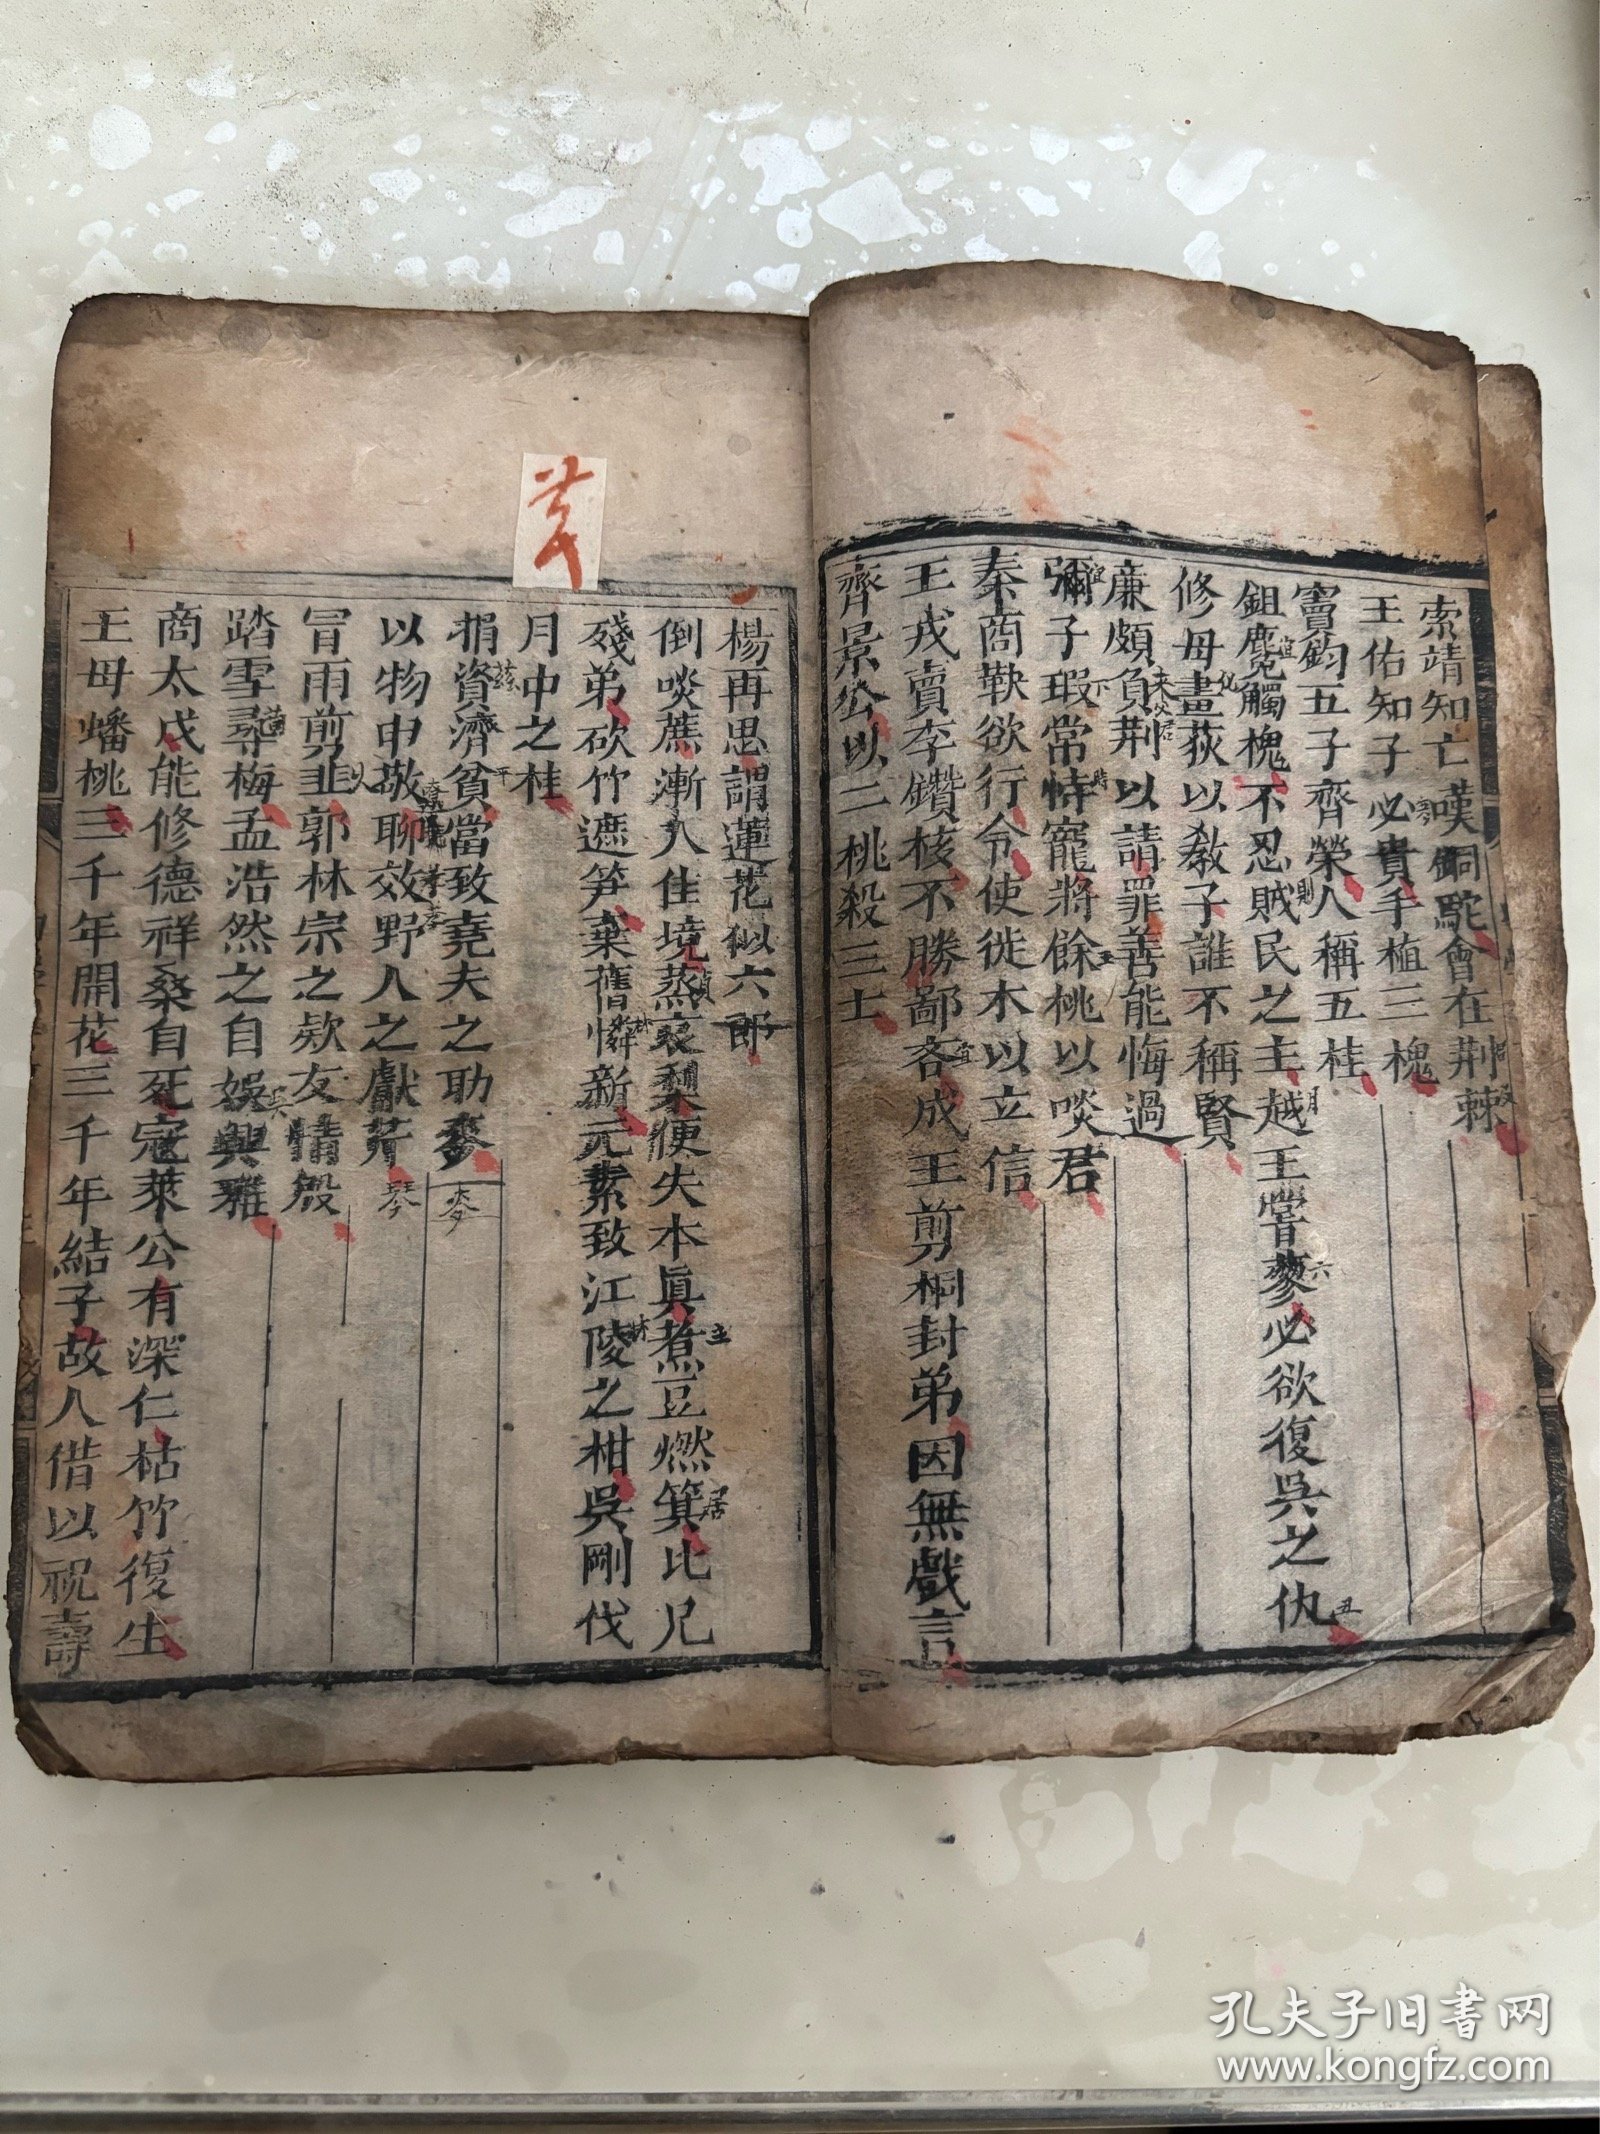 索靖知亡嘆銅駝會在荆棘
王佑知子必貴手植三槐
竇鈞五子齊榮人稱五桂
鉏麑觸槐不忍賊民之主越王嘗蓼必欲復吳之仇
修母畫荻以教子誰不稱賢
廉頗負荆以請罪善能悔過
彌子瑕常恃寵將餘桃以啖君
秦商鞅欲行令使徙木以立信
王戎賣李鑽核不勝鄙吝成王剪桐封弟因無戲言
齊景公以二桃殺三士
楊再思謂蓮花似六郎
倒啖蔗漸入佳境蒸哀梨便失本真煮豆燃箕比兄
殘弟砍竹遮笋棄舊憐新元素致江陵之柑吳剛伐
月中之桂
捐資濟貧當致堯夫之助麥
以物申敬聊效野人之獻芹
冒雨剪韭郭林宗之欵友情殷
踏雪尋梅孟浩然之自娛興雅
商太戊能修德祥桑自死寇萊公有深仁枯竹復生
王母蟠桃三千年開花三千年結子故人借以祝壽
孔夫子旧书网
www.kongfz.com